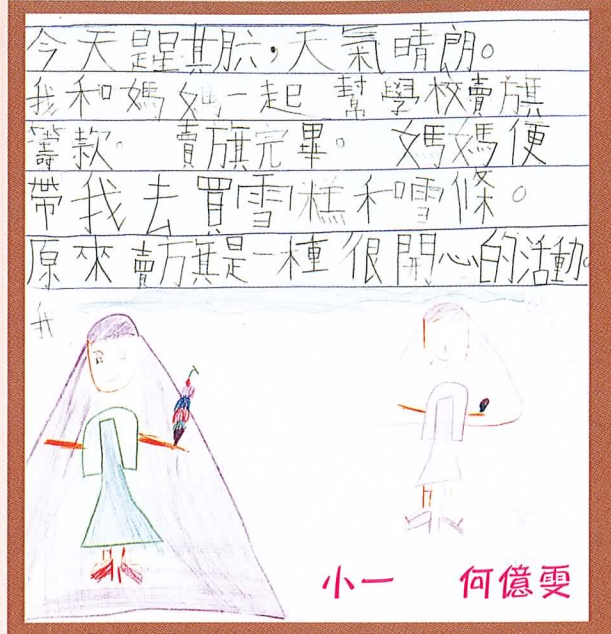 今天是星期六，天氣晴朗。
我和媽媽一起 幫學校賣旗
籌款。 賣旗完畢。 媽媽便
帶我去買雪糕和雪條。
原來賣旗是一種很開心的活動。
我
小一 何億雯